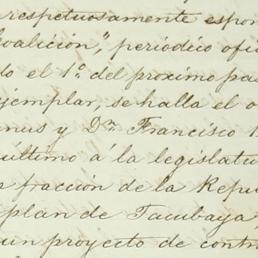 respetuosamente espon
oalicion," periódico ofi
do el 1º. del proximo pa
ejemplar, se halla el o
nus y Dn. Francisco
último á la legislatu
fraccion de la Repu
plan de Tacubaya,
un proyecto de contr